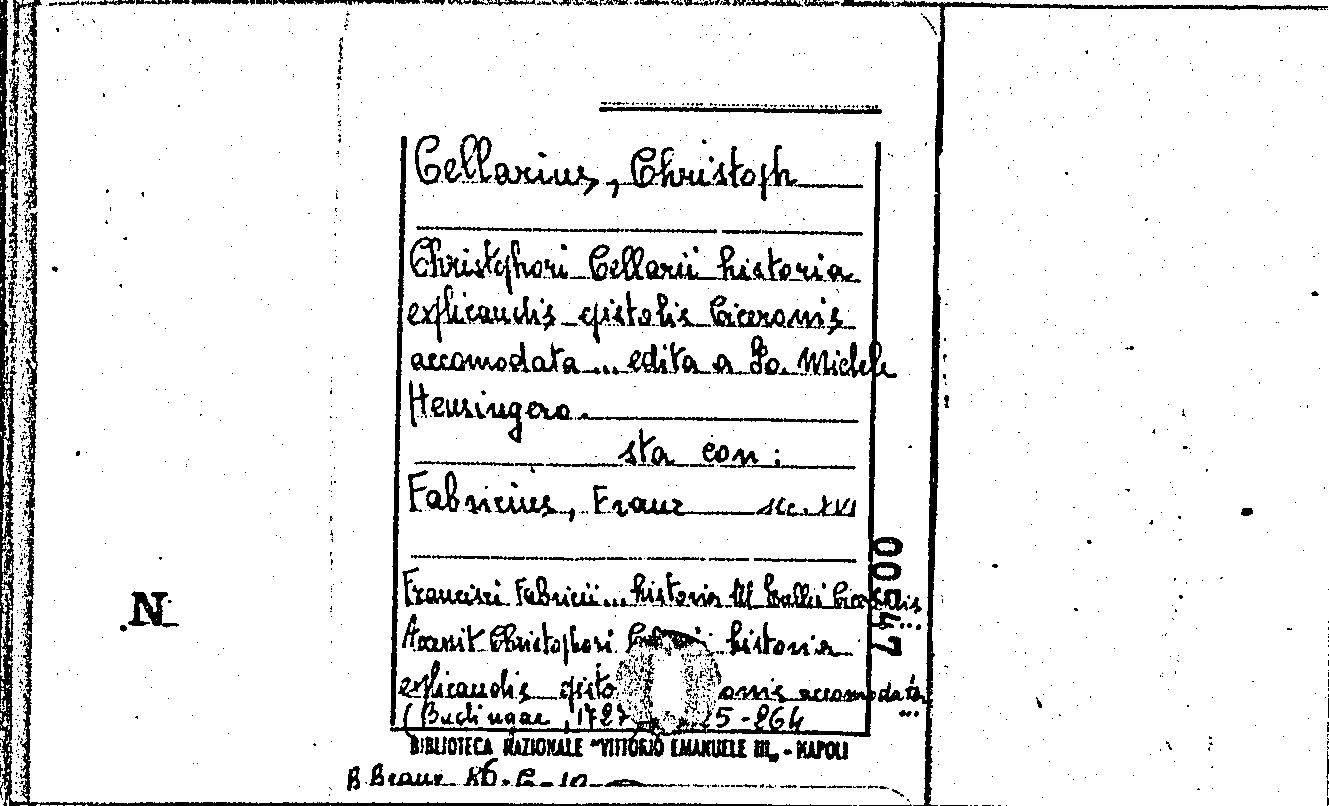 Cellarius, Christoph
Christophori Cellarii historia
explicandis epistolis Ciceronis
accomodata ... edita a Jo. Michele
Heusingero.
sta con:
Fabricius, Franz sec. XVI
Francisci Fabricii ... historia M. Tullii Ciceronis ...
Accessit Christophori historia
explicandis episto onis accomodata ...
(Budingae, 1727 5-264
BIBLIOTECA NAZIONALE "VITTORIO EMANUELE III„ - NAPOLI
B. Branc. 86. C-10
005427
N